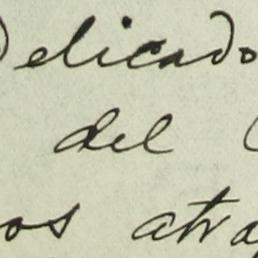 Delicado
del
os atra